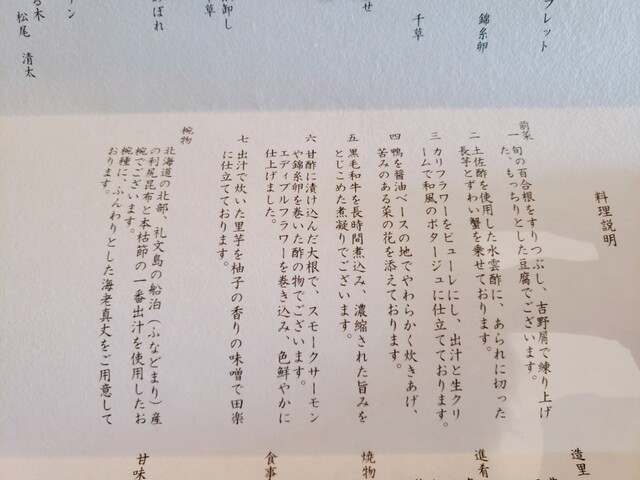 フレット
錦糸卵
千草
せ
卸し
草
あぼれ
る木
松尾 清太
料理説明
前菜
一 旬の百合根をすりつぶし、吉野屑で練り上げ
た、もっちりとした豆腐でございます。
二 土佐酢を使用した水雲酢に、あられに切った
長芋とずわい蟹を乗せております。
三 カリフラワーをピューレにし、出汁と生クリ
ームで和風のポタージュに仕立てております。
四 鴨を醤油ベースの地でやわらかく炊きあげ、
苦みのある菜の花を添えております。
五 黒毛和牛を長時間煮込み、濃縮された旨みを
とじこめた煮凝りでございます。
六 甘酢に漬け込んだ大根で、スモークサーモン
や錦糸卵を巻いた酢の物でございます。
エディブルフラワーを巻き込み、色鮮やかに
仕上げました。
七 出汁で炊いた里芋を柚子の香りの味噌で田楽
に仕立てております。
椀物
北海道の北部、礼文島の船泊(ふなどまり)産
の利尻昆布と本枯節の一番出汁を使用したお
椀でございます。
椀種に、ふんわりとした海老真丈をご用意して
おります。
造里
進肴
焼物
食事
甘味